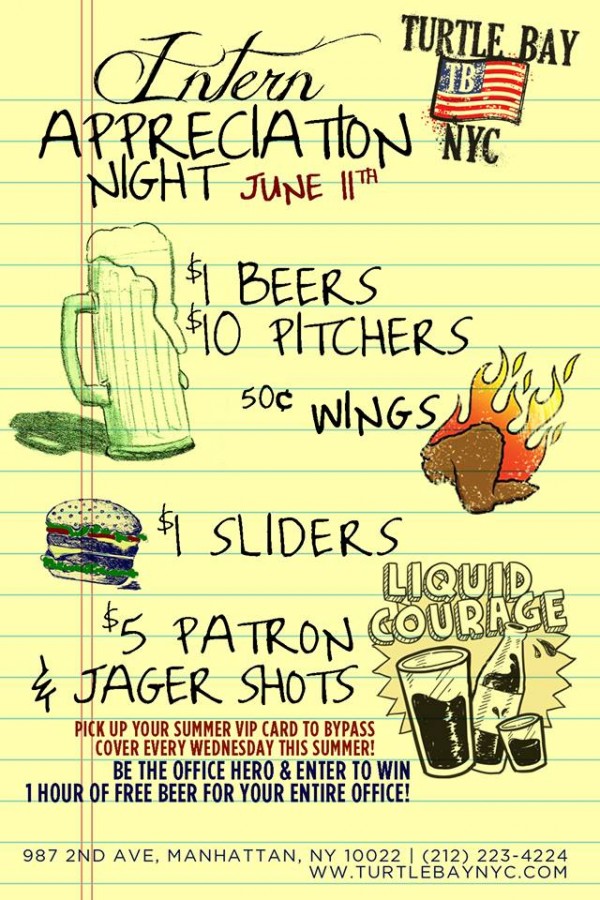 Intern
APPRECIATION
NIGHT JUNE 11TH
TURTLE BAY
TB
NYC
$1 BEERS
$10 PITCHERS
50¢ WINGS
$1 SLIDERS
LIQUID
COURAGE
$5 PATRON
& JAGER SHOTS
PICK UP YOUR SUMMER VIP CARD TO BYPASS
COVER EVERY WEDNESDAY THIS SUMMER!
BE THE OFFICE HERO & ENTER TO WIN
1 HOUR OF FREE BEER FOR YOUR ENTIRE OFFICE!
987 2ND AVE, MANHATTAN, NY 10022 | (212) 223-4224
WWW.TURTLEBAYNYC.COM